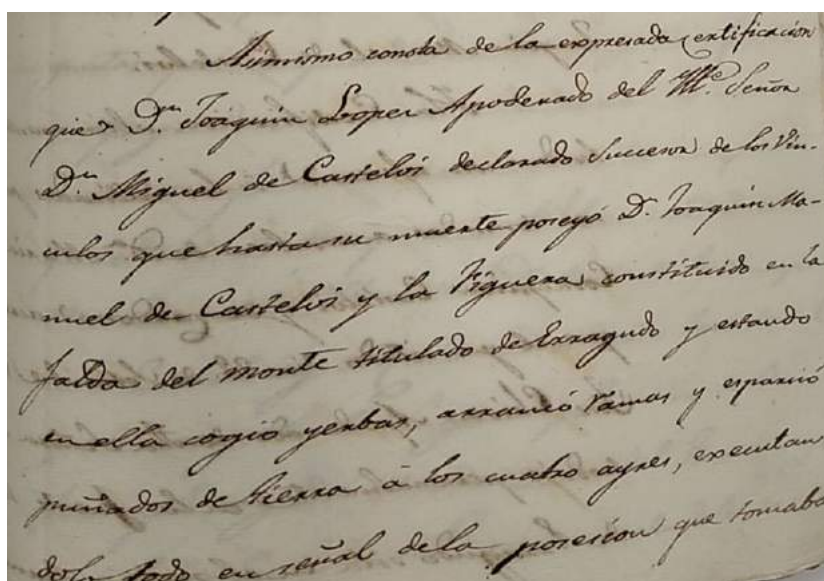 Asimismo consta de la expresada certificacion
que Dn. Joaquin Lopez Apoderado del M.e Señor
Dn. Miguel de Castelvi declarado Succesor de los Vin-
culos que hasta su muerte poseyó D. Joaquin Ma-
nuel de Castelvi y la Figuera constituido en la
falda del monte titulado de Erragudo y estando
en ella cogio yerbas, arrancó ramas y esparció
puñados de tierra á los cuatro ayres, executan
dolo todo en señal de la posesion que tomaba